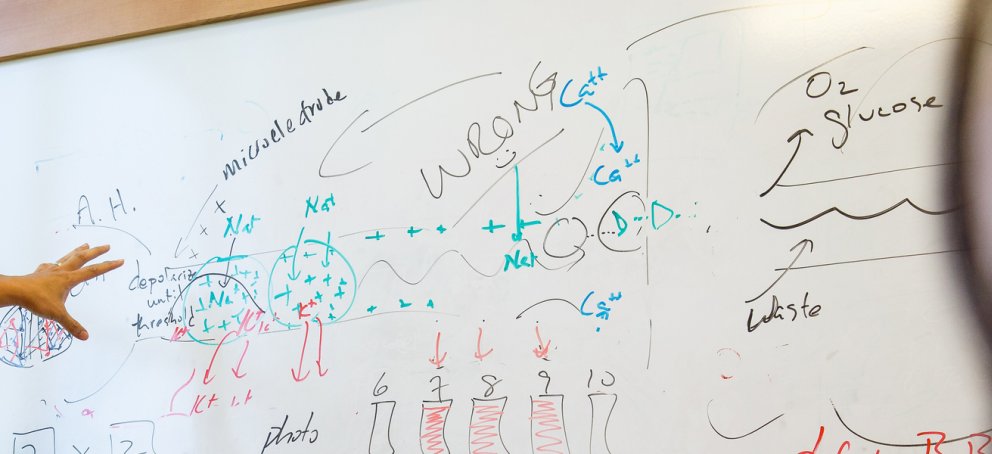 A.H.
microelectrode
WRONG
Ca++
Ca++
Na+
Na+
Na+
Na+
depolarize
until
threshold
K+
K+
K+
K+
Ca++
6 7 8 9 10
photo
O2
glucose
waste